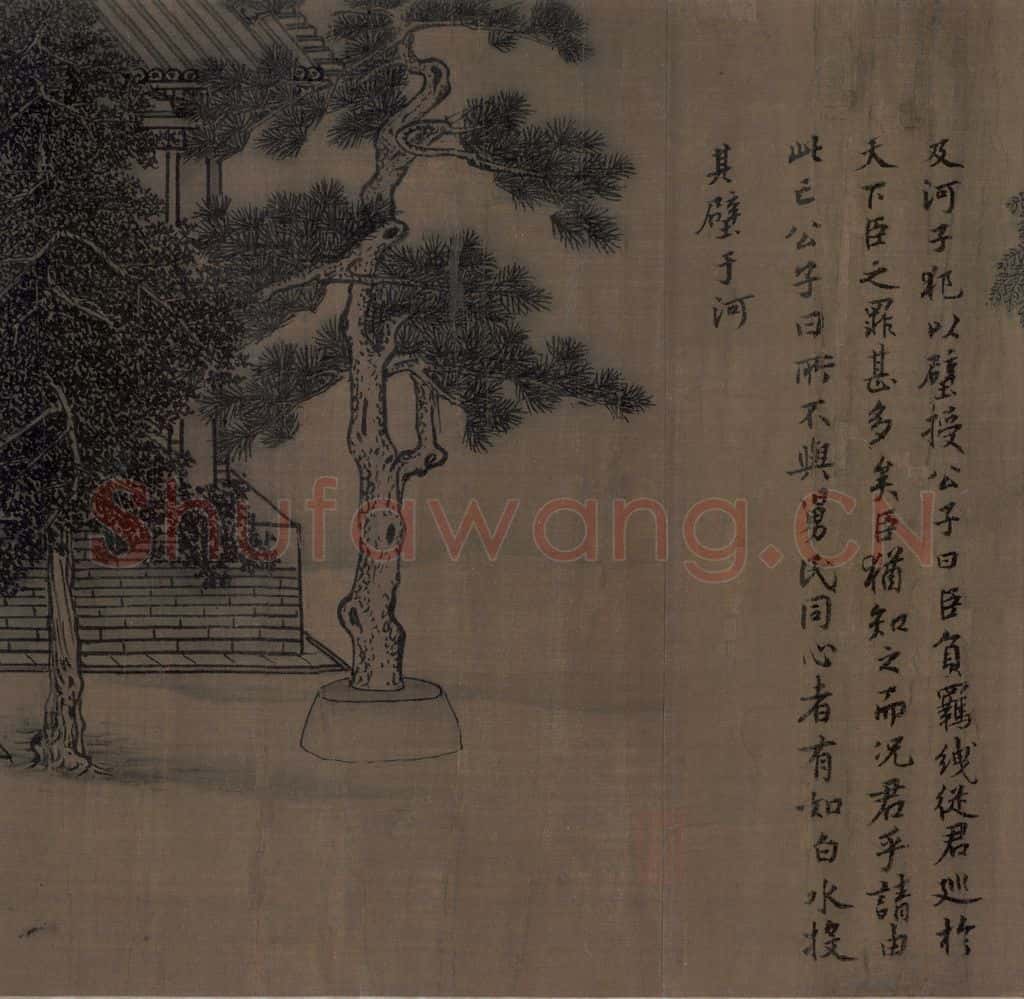 及河子犯以璧授公子曰臣負羈絏從君巡於
天下臣之罪甚多矣臣猶知之而况君乎請由
此亡公子曰所不與舅氏同心者有如白水投
其璧于河
Shufawang.CN